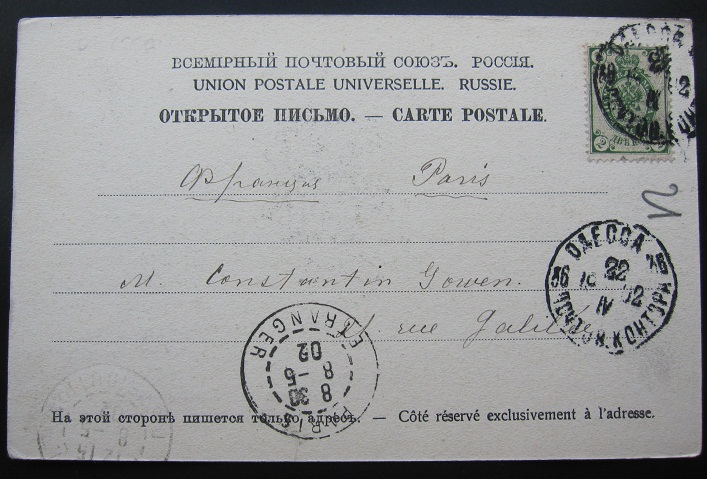 ВСЕМІРНЫЙ ПОЧТОВЫЙ СОЮЗЪ. РОССІЯ.
UNION POSTALE UNIVERSELLE. RUSSIE.
ОТКРЫТОЕ ПИСЬМО. — CARTE POSTALE.
ОДЕССА
22
IV
2
Франція Paris
ОДЕССА
22
IV 02
ГОР.ПОЧТ.КОНТОРА
M. Constantin Gowen.
rue Galilée
PARIS ETRANGER
8 30
8 -5
02
На этой сторонѣ пишется только адресъ. — Côté réservé exclusivement à l'adresse.